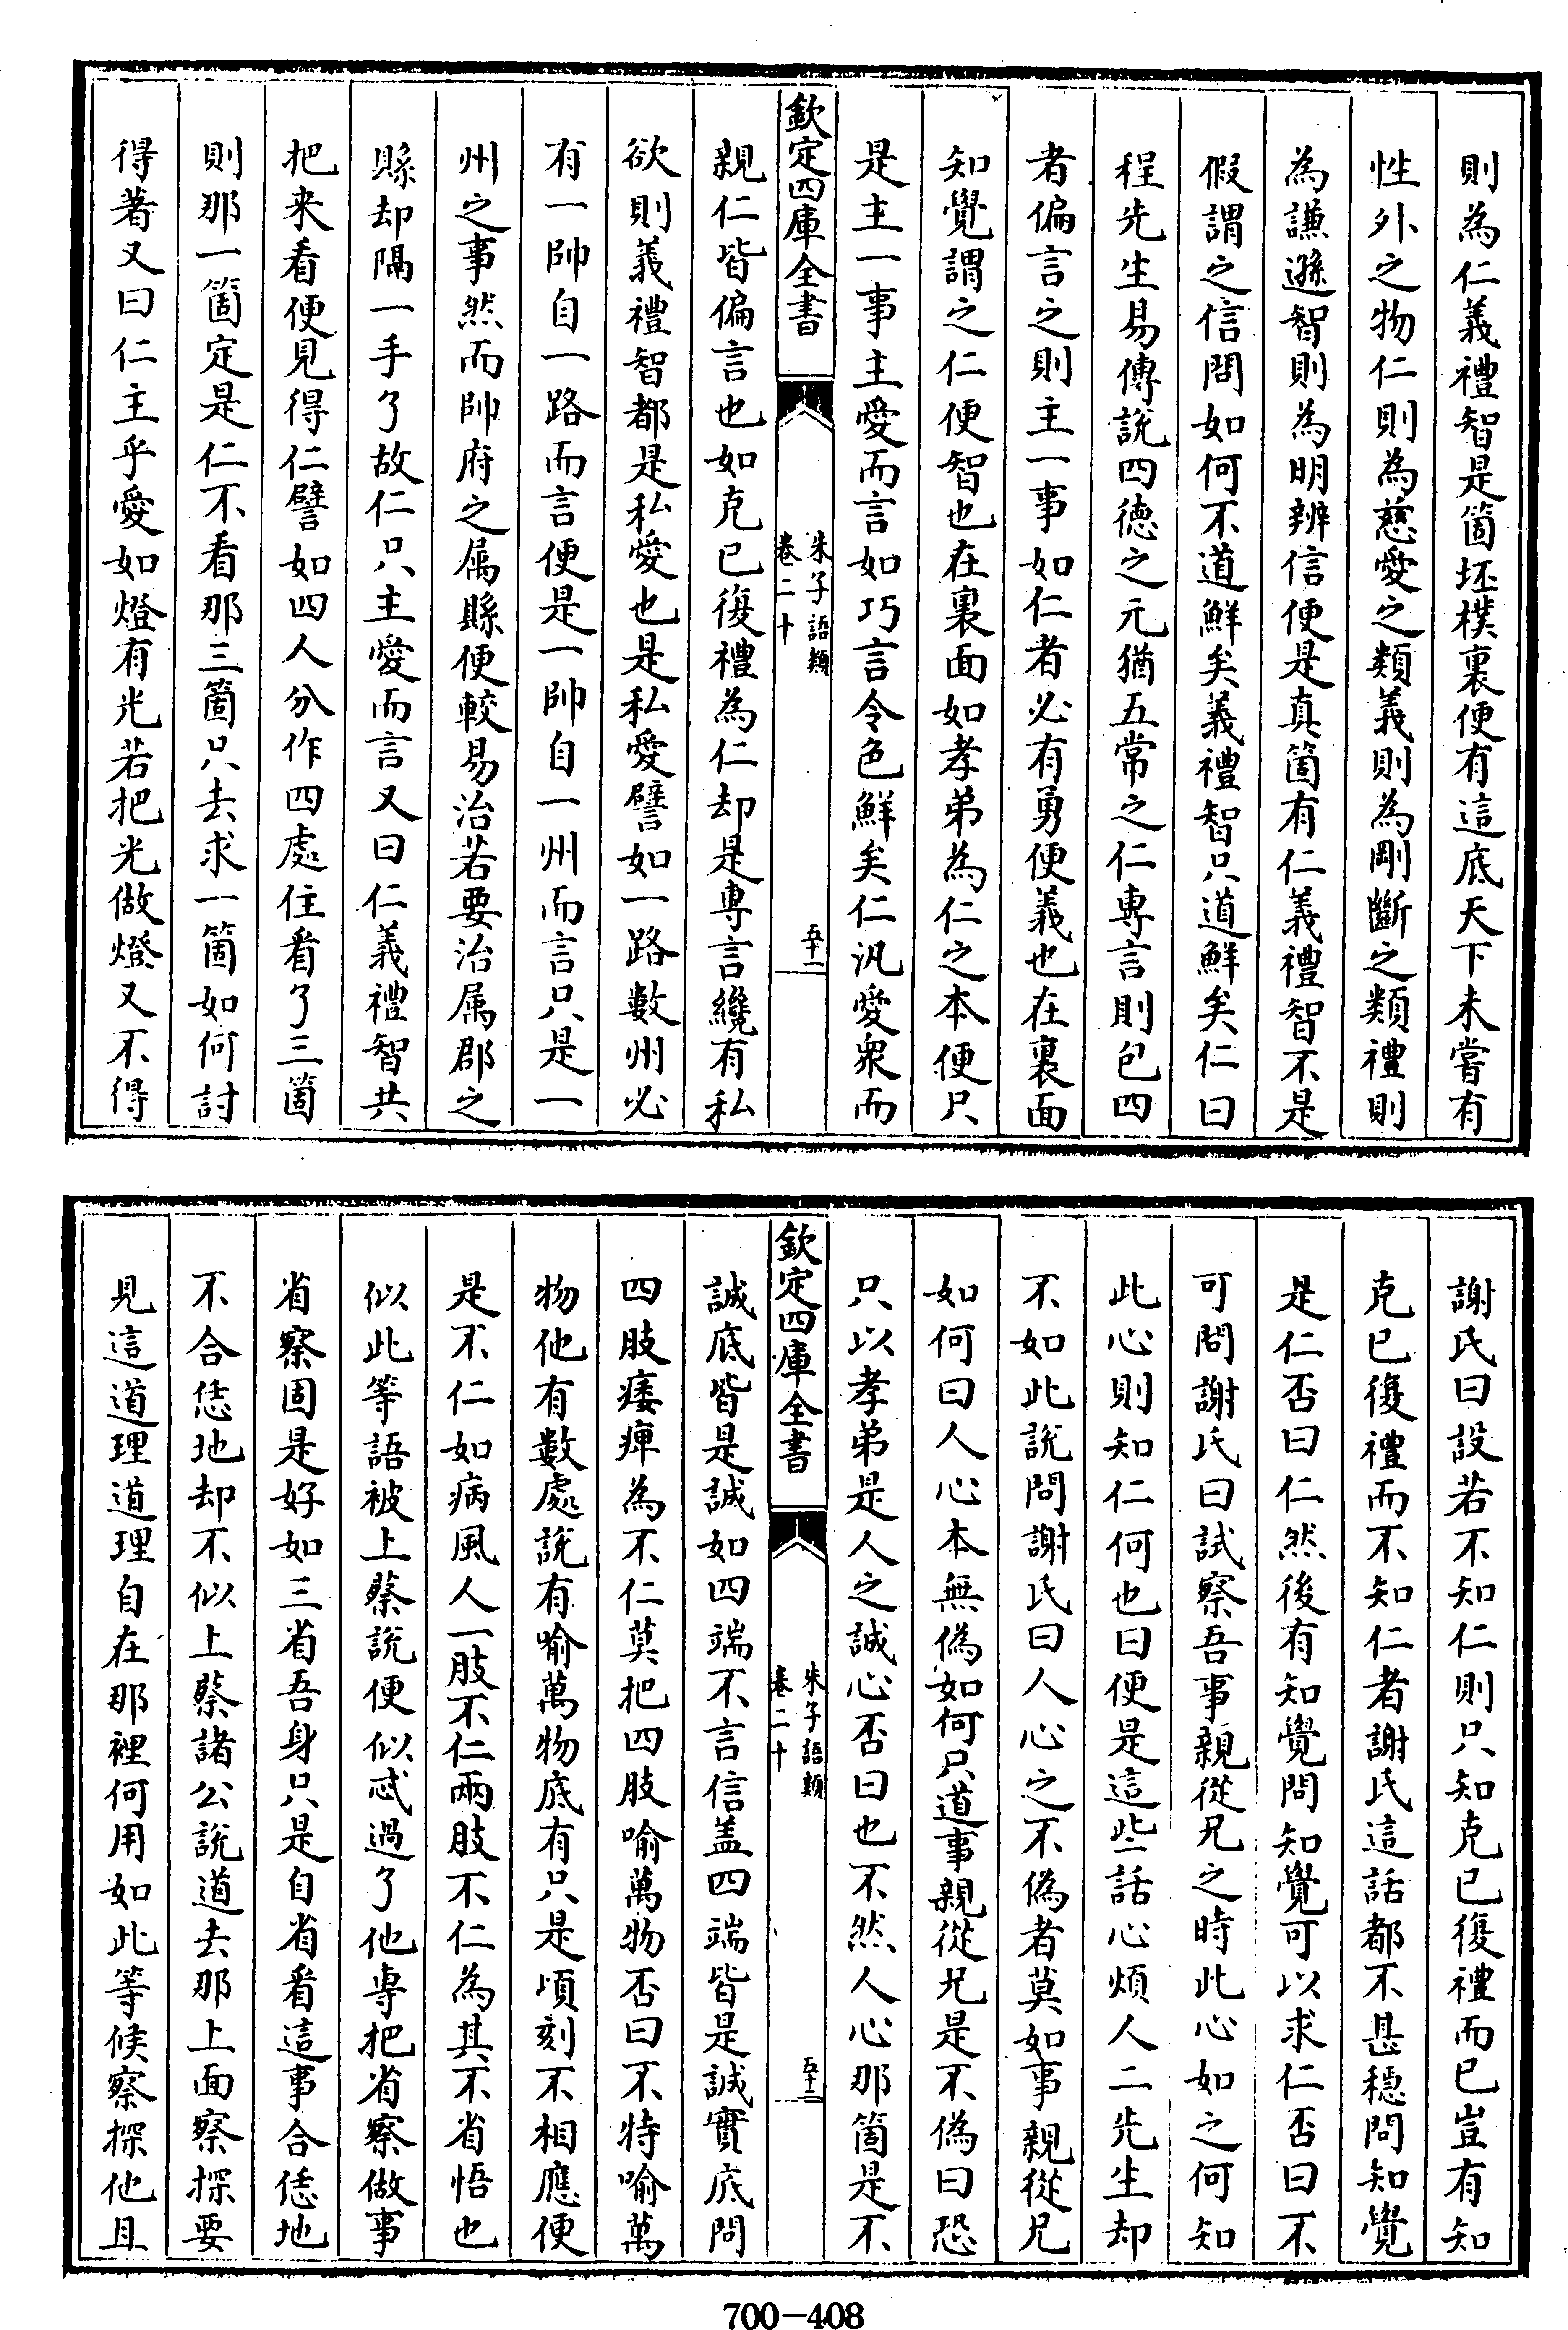 則為仁義禮智是箇坯樸裏便有這底天下未嘗有
性外之物仁則為慈愛之類義則為剛斷之類禮則
為謙遜智則為明辨信便是真箇有仁義禮智不是
假謂之信問如何不道鮮矣義禮智只道鮮矣仁曰
程先生易傳說四德之元猶五常之仁專言則包四
者偏言之則主一事如仁者必有勇便義也在裏面
知覺謂之仁便智也在裏面如孝弟為仁之本便只
是主一事主愛而言如巧言令色鮮矣仁汎愛衆而
欽定四庫全書
朱子語類
卷二十
五十一
親仁皆偏言也如克已復禮為仁却是專言纔有私
欲則義禮智都是私愛也是私愛譬如一路數州必
有一帥自一路而言便是一帥自一州而言只是一
州之事然而帥府之属縣便較易治若要治属郡之
縣却隔一手了故仁只主愛而言又曰仁義禮智共
把来看便見得仁譬如四人分作四處住看了三箇
則那一箇定是仁不看那三箇只去求一箇如何討
得著又曰仁主乎愛如燈有光若把光做燈又不得
謝氏曰設若不知仁則只知克已復禮而已豈有知
克已復禮而不知仁者謝氏這話都不甚穏問知覺
是仁否曰仁然後有知覺問知覺可以求仁否曰不
可問謝氏曰試察吾事親從兄之時此心如之何知
此心則知仁何也曰便是這些話心煩人二先生却
不如此說問謝氏曰人心之不偽者莫如事親從兄
如何曰人心本無偽如何只道事親從兄是不偽曰恐
只以孝弟是人之誠心否曰也不然人心那箇是不
欽定四庫全書
朱子語類
卷二十
五十二
誠底皆是誠如四端不言信盖四端皆是誠實底問
四肢痿痺為不仁莫把四肢喻萬物否曰不特喻萬
物他有數處說有喻萬物底有只是頃刻不相應便
是不仁如病風人一肢不仁兩肢不仁為其不省悟也
似此等語被上蔡說便似忒過了他專把省察做事
省察固是好如三省吾身只是自省看這事合恁地
不合恁地却不似上蔡諸公說道去那上面察探要
見這道理道理自在那裡何用如此等候察探他且
700-408